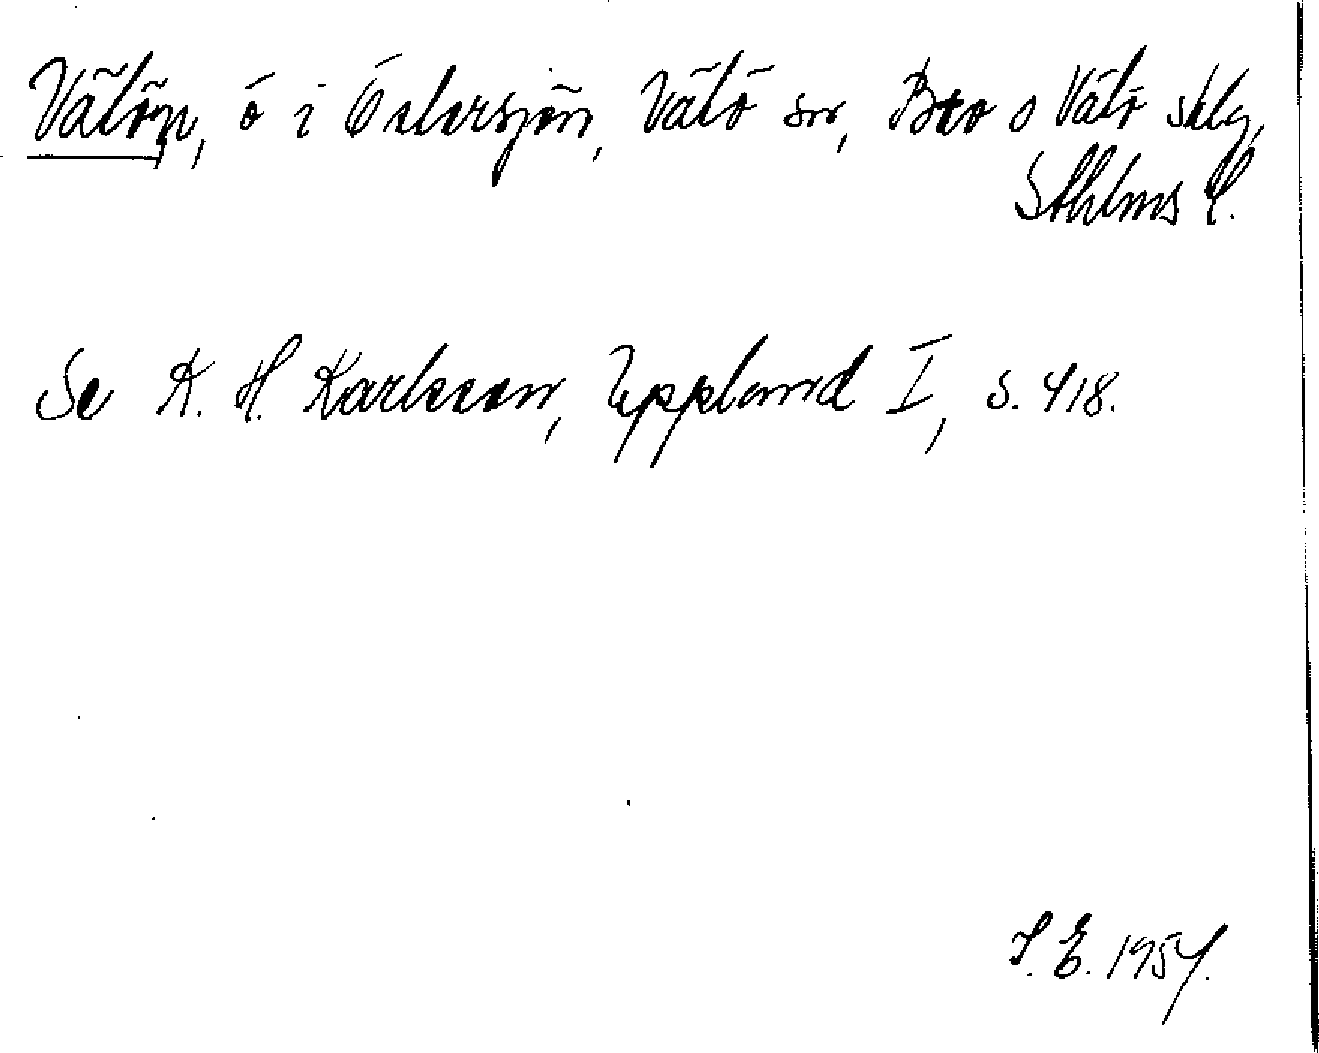 Vätön, ö i Östersjön, Vätö sn, Bro o Vätö sklg,
Sthlms l.
Se K. H. Karlsson, Uppland I, s. 418.
S. E. 1954.